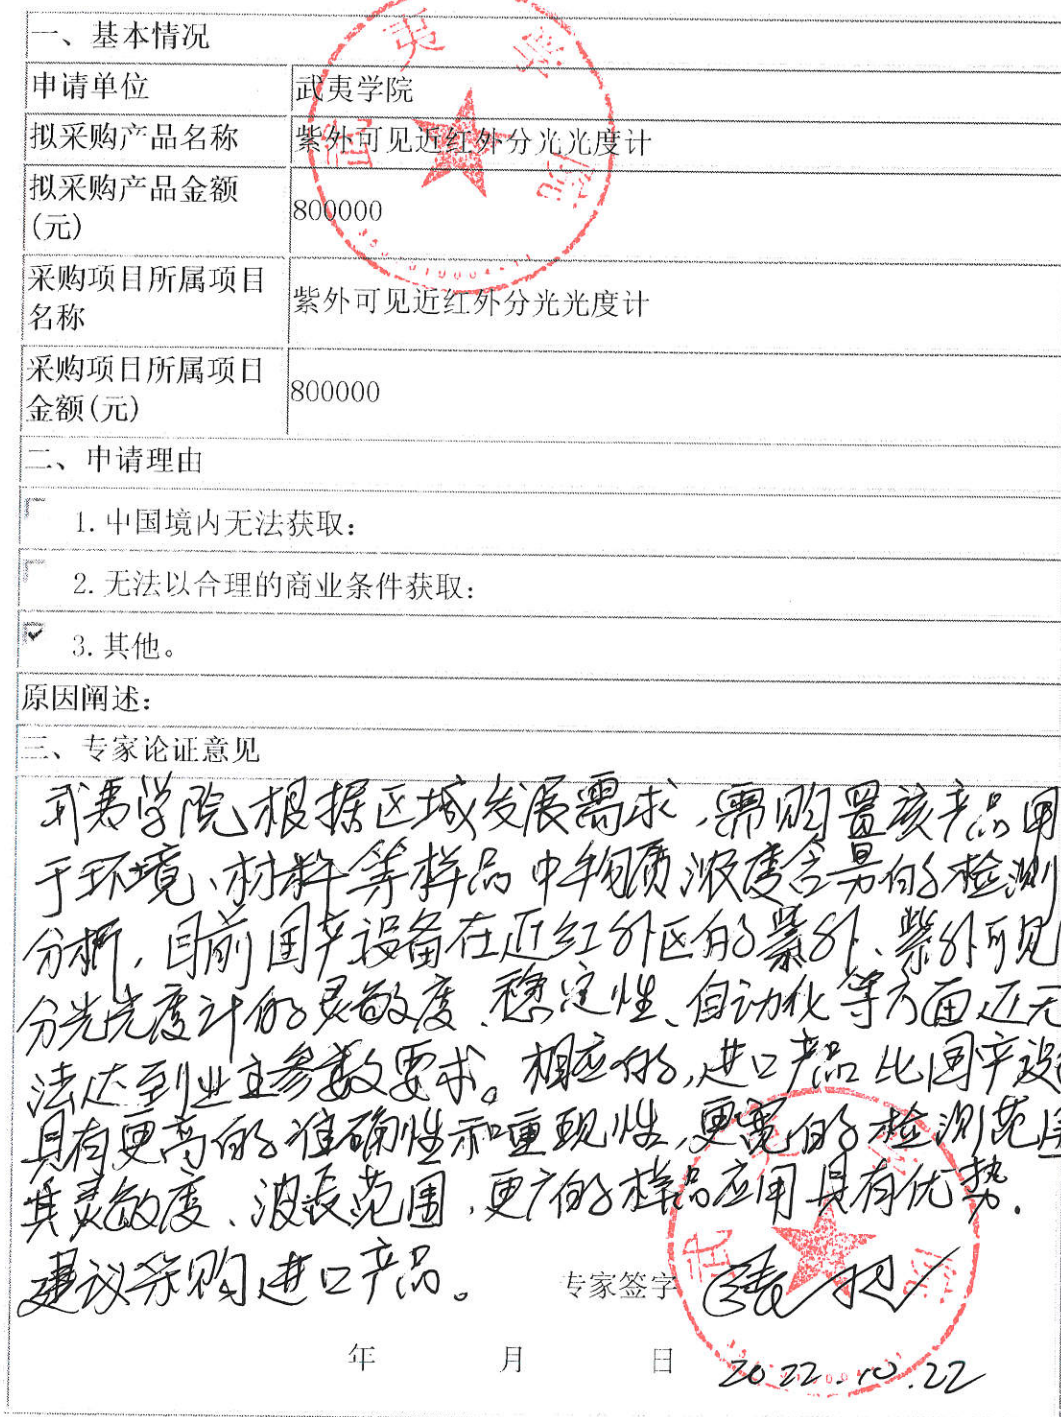 一、基本情况
申请单位 武夷学院
拟采购产品名称 紫外可见近红外分光光度计
拟采购产品金额
(元) 800000
采购项目所属项目
名称 紫外可见近红外分光光度计
采购项目所属项目
金额(元) 800000
二、申请理由
1.中国境内无法获取：
2.无法以合理的商业条件获取：
3.其他。
原因阐述：
三、专家论证意见
武夷学院根据区域发展需求，需购置该产品用
于环境、材料等样品中物质浓度含量的检测
分析，目前国产设备在近红外区的紫外、紫外可见
分光光度计的灵敏度、稳定性、自动化等方面还无
法达到业主参数要求。相应的，进口产品比国产设
具有更高的准确性和重现性，更宽的检测范围
其灵敏度、波长范围，更广的样品应用具有优势.
建议采购进口产品。
专家签字
年 月 日 2022.10.22
武夷学院
武夷学院